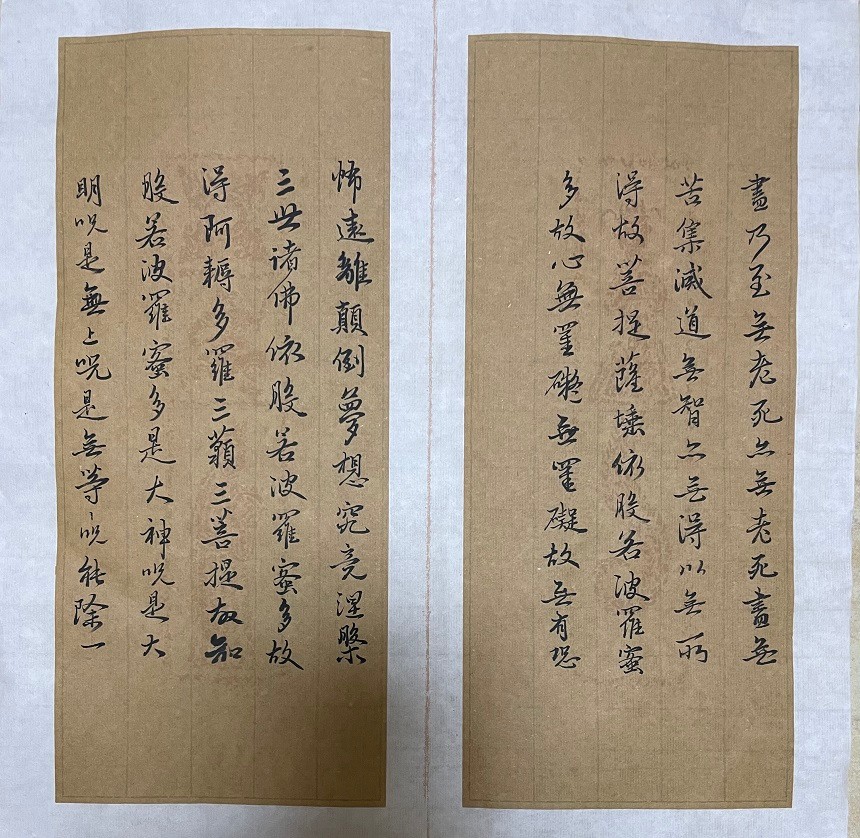 盡乃至無老死亦無老死盡無
苦集滅道無智亦無得以無所
得故菩提薩埵依般若波羅蜜
多故心無罣礙無罣礙故無有恐
怖遠離顛倒夢想究竟涅槃
三世諸佛依般若波羅蜜多故
得阿耨多羅三藐三菩提故知
般若波羅蜜多是大神呪是大
明呪是無上呪是無等々呪能除一